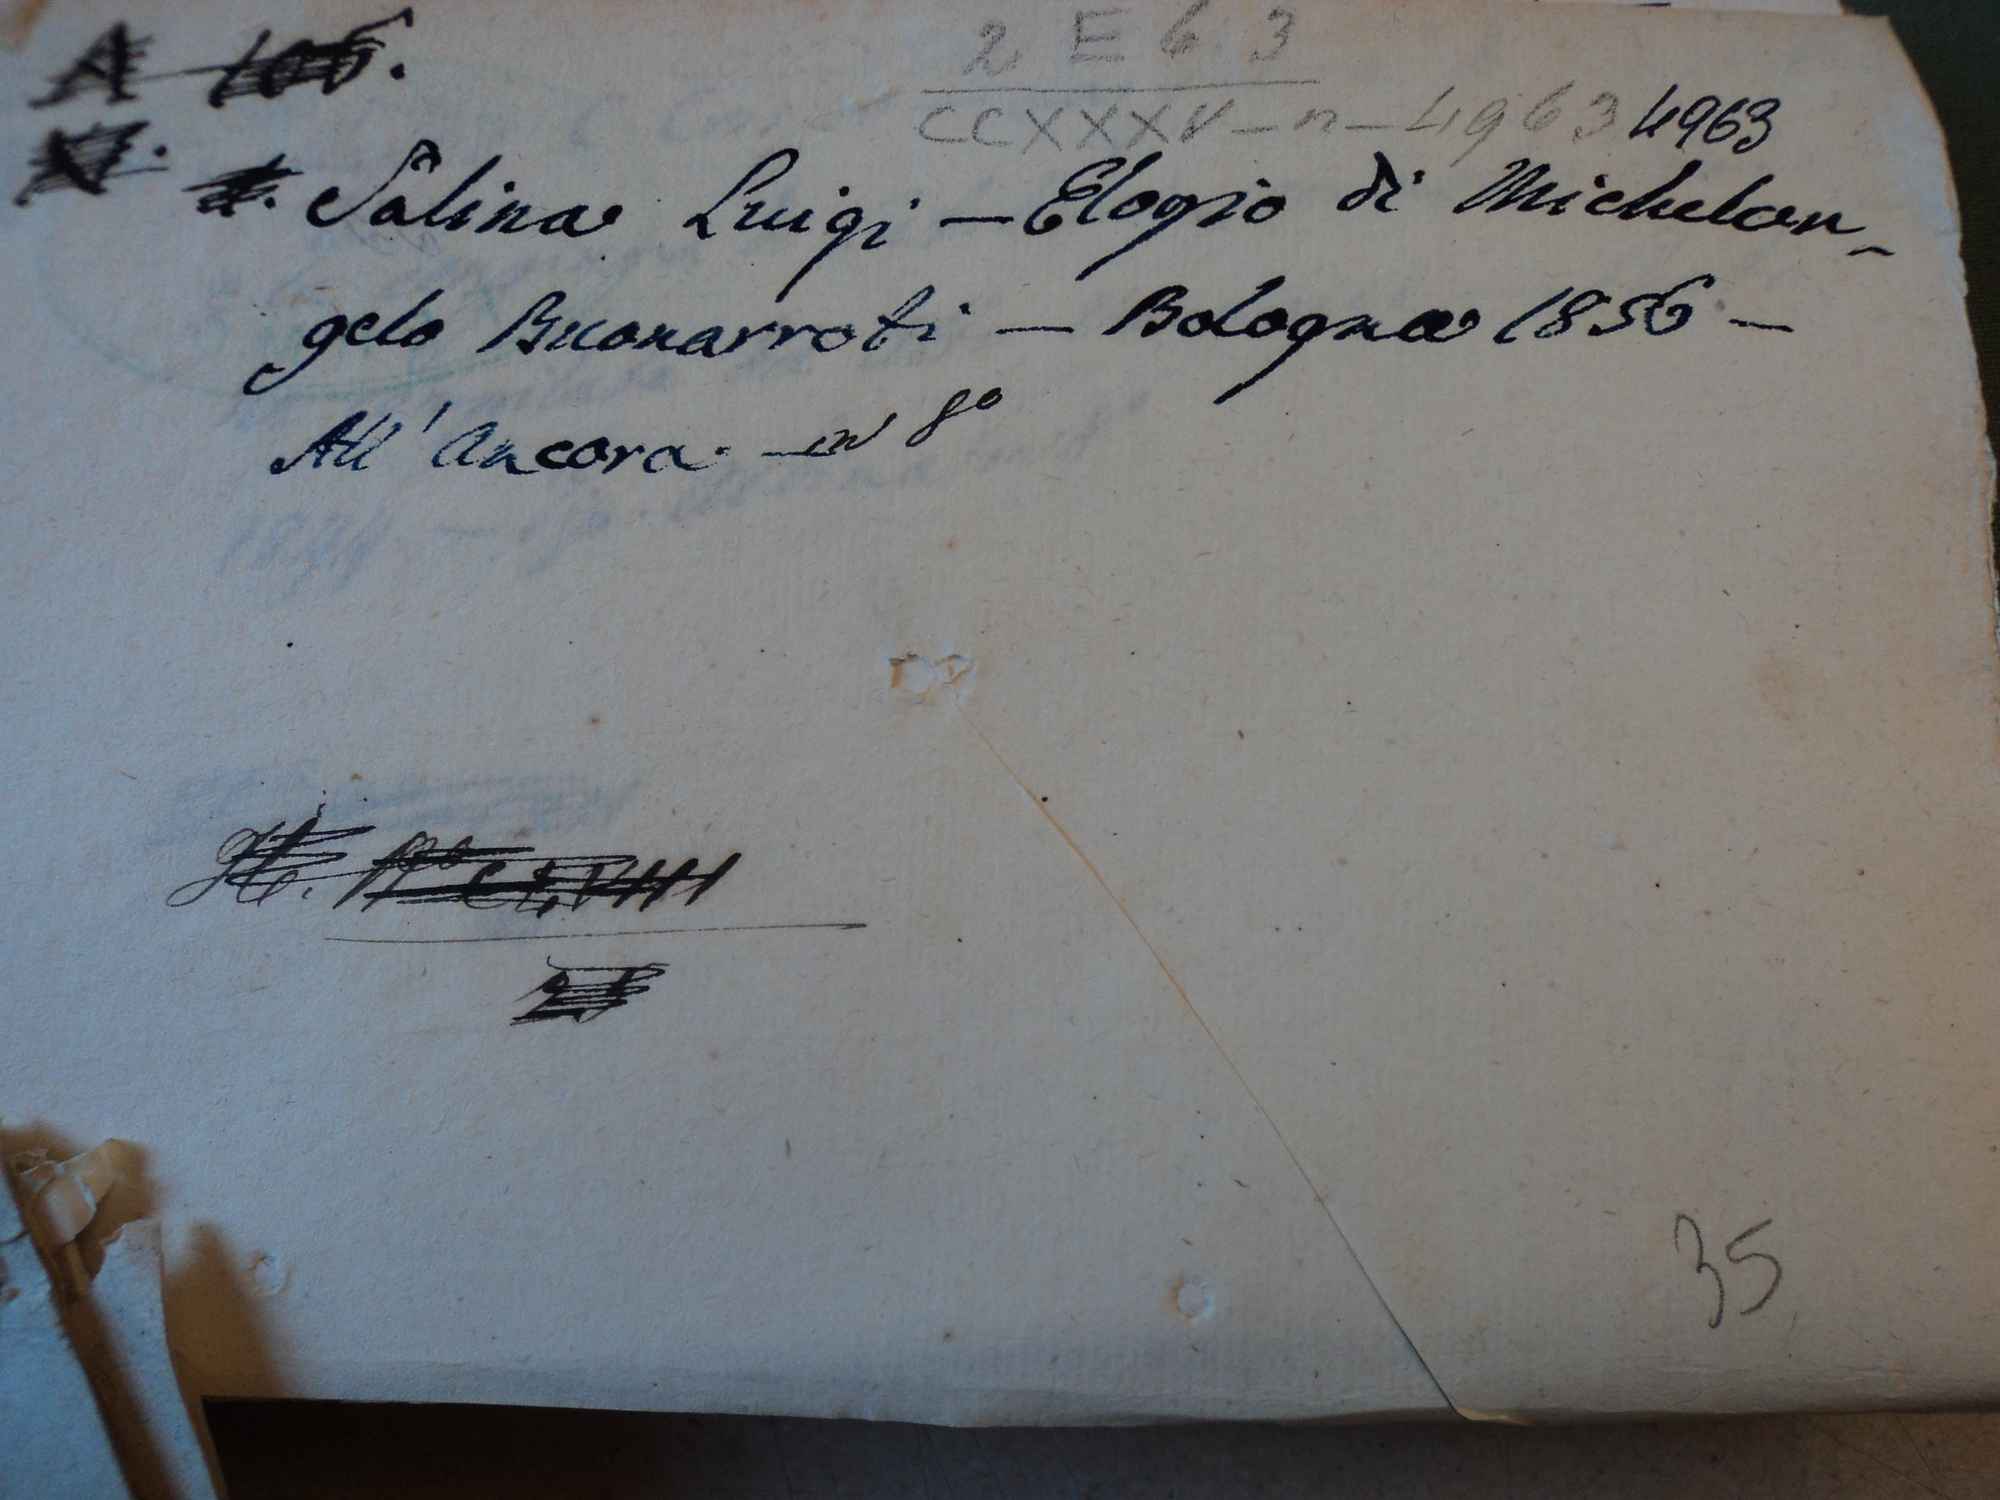 A 105.
2 E 6 3
CCXXXV - n - 4963 4963
Salina Luigi — Elogio di Michelan-
gelo Buonarroti — Bologna 1856 —
All' Ancora. — in 8º
35